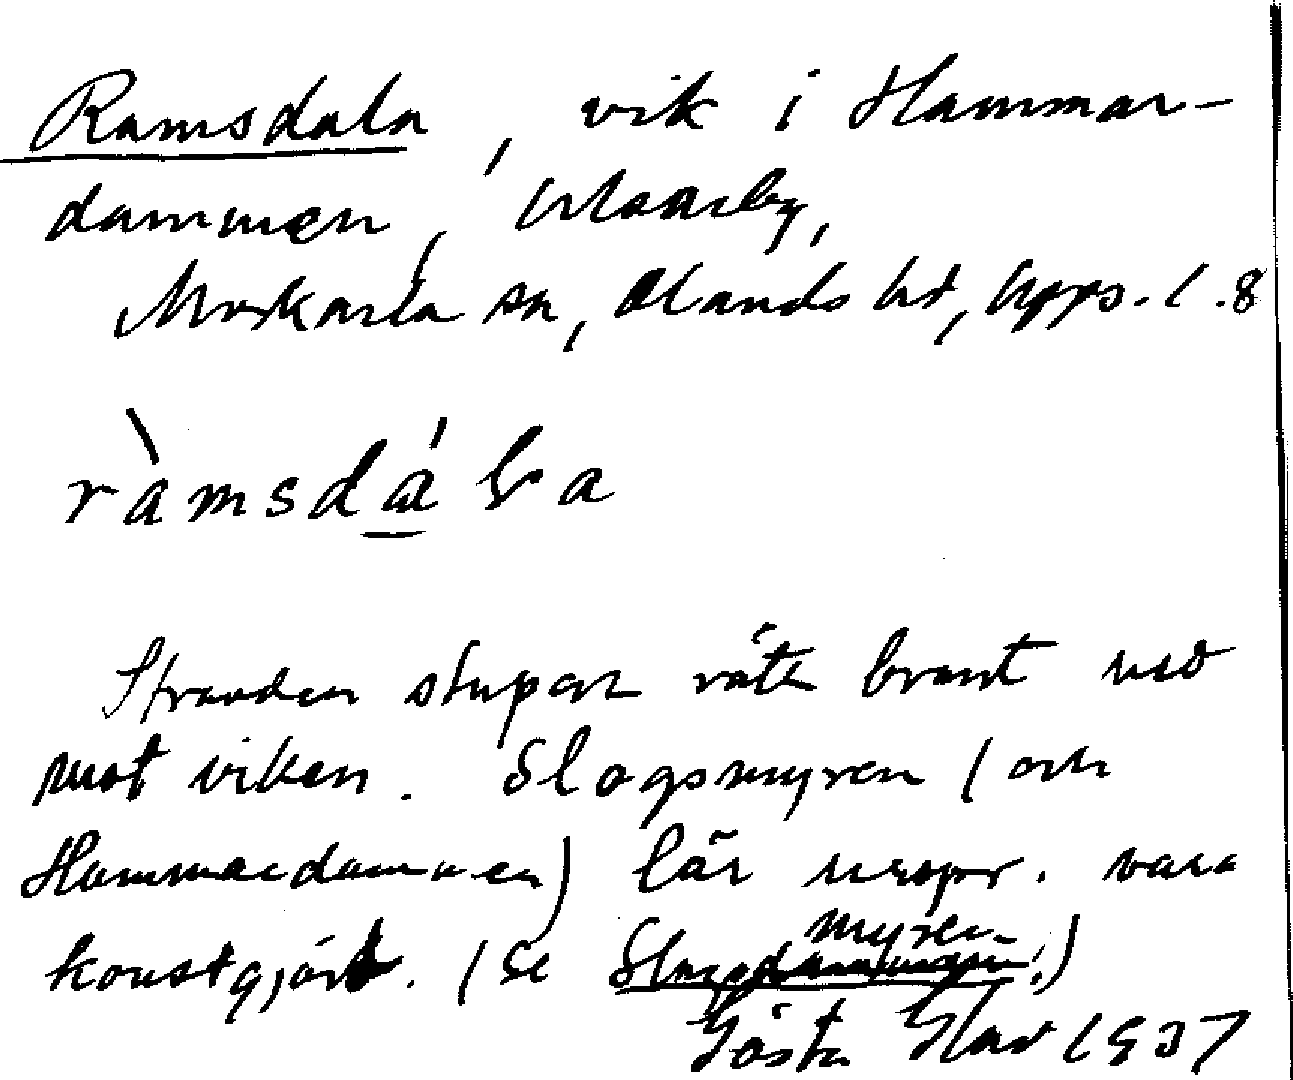 Ramsdala, vik i Hammar-
dammen,
Morkarla sn, Olands hd, Upps. l. 8
ràmsdála
Stranden stupar rätt brant ned
mot viken. Slagsmyren (och
Hammardammen) lär urspr. vara
konstgjord. (Se Slagsmyren.)
Gösta 1937